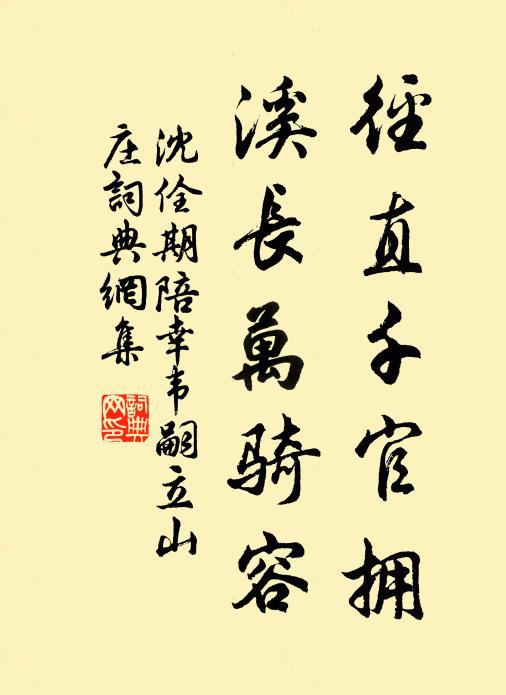 徑直千官擁
溪長萬騎容
沈佺期陪幸韦嗣立山
庄詞典網集
詞典
网印